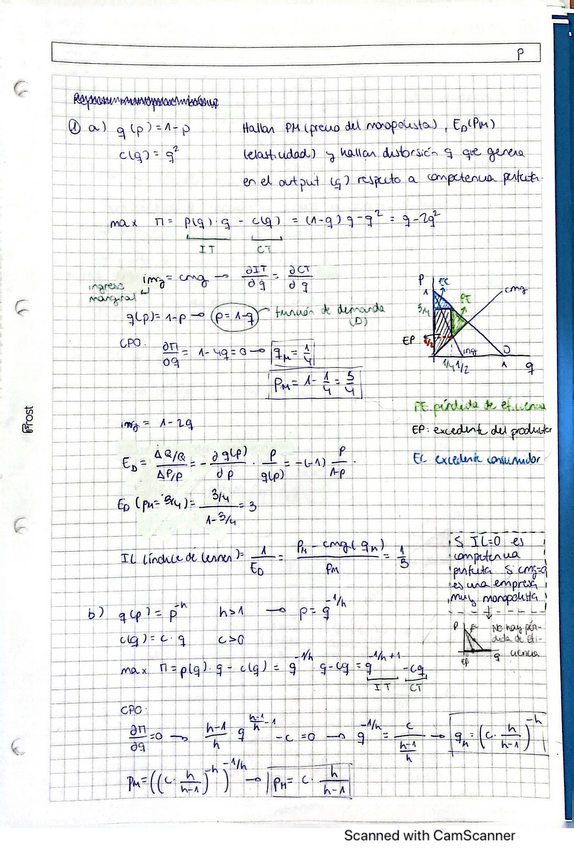 P
① a) q(p) = 1-p Hallar PM (precio del monopolista), E_D(P_M)
C(q) = q² (elasticidad) y hallar distorsión q que genera
en el output (q) respecto a competencia perfecta.
max Π = p(q)·q - c(q) = (1-q)q - q² = q - 2q²
IT CT
ingreso marginal
img = cmg → ∂IT/∂q = ∂CT/∂q
q(p) = 1-p → p = 1-q → función de demanda (D)
CPO: ∂Π/∂q = 1-4q = 0 → q_M = 1/4
P_M = 1 - 1/4 = 3/4
P
1
EC
PE
cmg
EP
1/4 1/2
img
1
D
q
PE pérdida de eficiencia
EP: excedente del productor
EC excedente consumidor
img = 1-2q
E_D = ΔQ/Q / ΔP/P = - ∂q(p)/∂p · p/q(p) = -(-1) P/1-p
E_D (p_M = 3/4) = 3/4 / 1-3/4 = 3
IL (índice de Lerner) = 1/E_D = P_M - cmg(q_M) / P_M = 1/3
Si IL=0 es
competencia
perfecta. Si cmg=0
es una empresa
muy monopolista
P
No hay pér-
dida de efi-
ciencia
q
b) q(p) = p^-h h>1 → p = q^-1/h
c(q) = c·q c>0
max Π = p(q)·q - c(q) = q^-1/h q - cq = q^-1/h+1 - cq
IT CT
CPO:
∂Π/∂q = 0 → h-1/h q^h-1/h-1 - c = 0 → q^-1/h = c / h-1/h → q_M = (c · h/h-1)^-h
P_M = ((c · h/h-1)^-h)^-1/h → P_M = c · h/h-1
Scanned with CamScanner